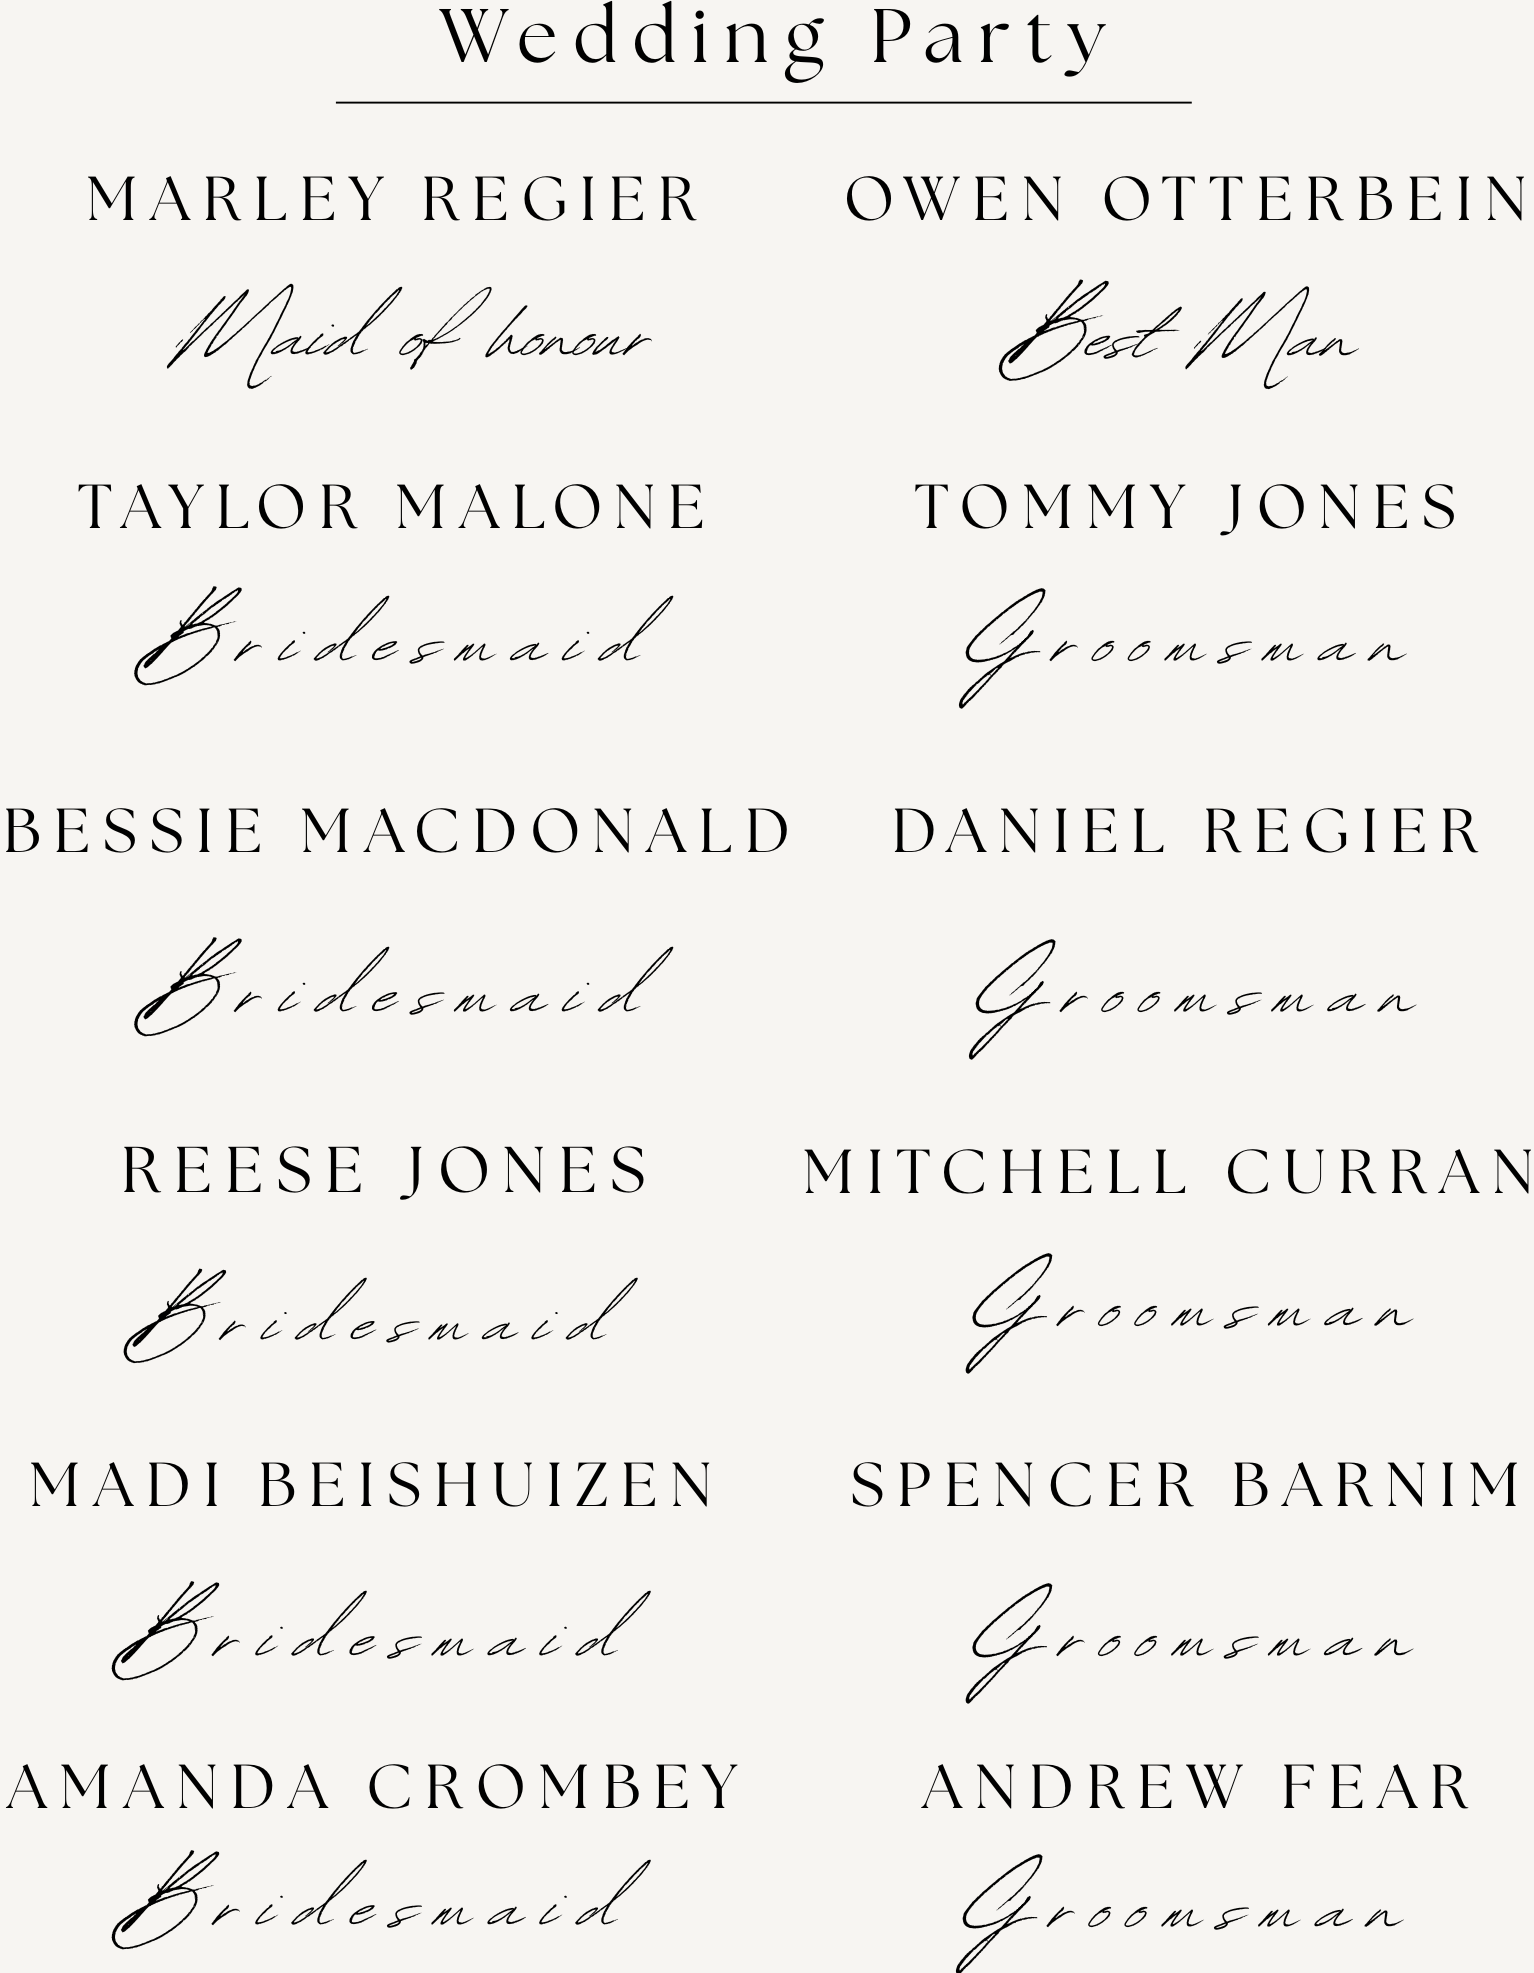 Wedding Party
MARLEY REGIER
Maid of honour
OWEN OTTERBEIN
Best Man
TAYLOR MALONE
Bridesmaid
TOMMY JONES
Groomsman
BESSIE MACDONALD
Bridesmaid
DANIEL REGIER
Groomsman
REESE JONES
Bridesmaid
MITCHELL CURRAN
Groomsman
MADI BEISHUIZEN
Bridesmaid
SPENCER BARNIM
Groomsman
AMANDA CROMBEY
Bridesmaid
ANDREW FEAR
Groomsman